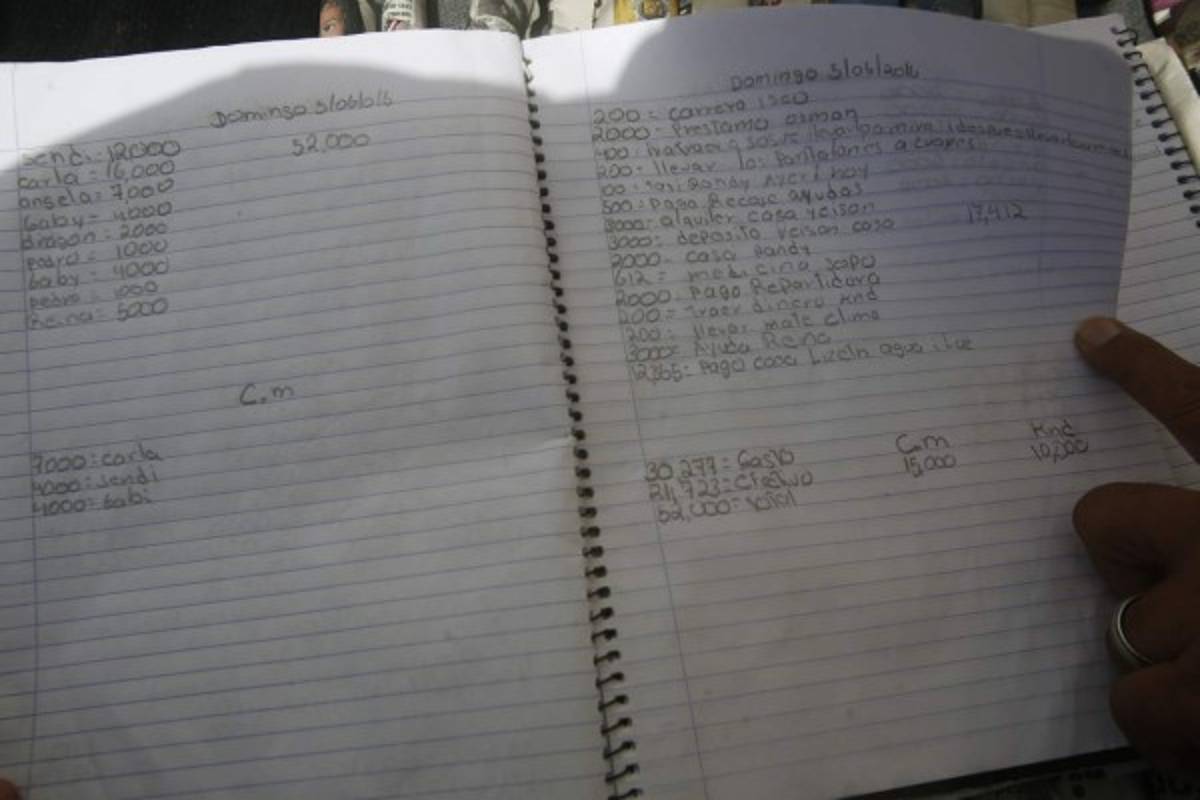 Domingo 5/06/016
52,000
Sendi = 12000
carla = 16,000
angela = 7,000
Gaby = 4000
dragon = 2000
pedro = 1000
baby = 4000
pedro = 1000
Reina = 5000
C.m
7000 = carla
4000 = sendi
4000 = Gabi
Domingo 5/06/2016
200 = carrera
2000 = Prestamo osman
200 = llevar los Pantalones a
Randy Ayer hoy
500 = pago Recojo ayudas
3000 = alquiler casa yeison
17,412
3000 = deposito yeison casa
2000 = casa Randy
612 = medicina sapo
2000 = pago Repartidora
200 = traer dinero Knd
200 = llevar mate clima
3000 = Ayuda Reina
12,865 = pago casa Lizeth agua i luz
30,277 = Gasto
21,723 = Efectivo
52,000 = total
C.m
15,000
Knd
10,000